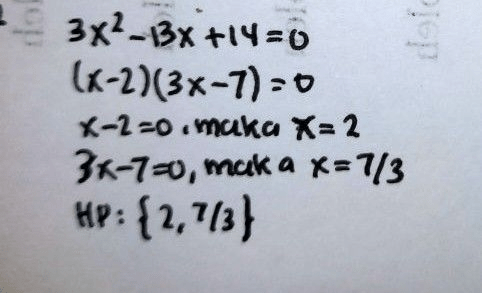 3x² - 13x + 14 = 0
(x-2)(3x-7) = 0
x-2=0, maka x = 2
3x-7=0, maka x = 7/3
HP : {2, 7/3}